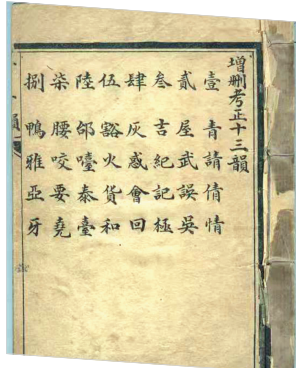 增刪考正十三韻
壹 青請倩情
貳 屋武誤吳
叁 吉紀記極
肆 灰惑會回
伍 豁火貨和
陸 邰嚏泰臺
柒 腰咬要堯
捌 鴨雅亞牙
韻